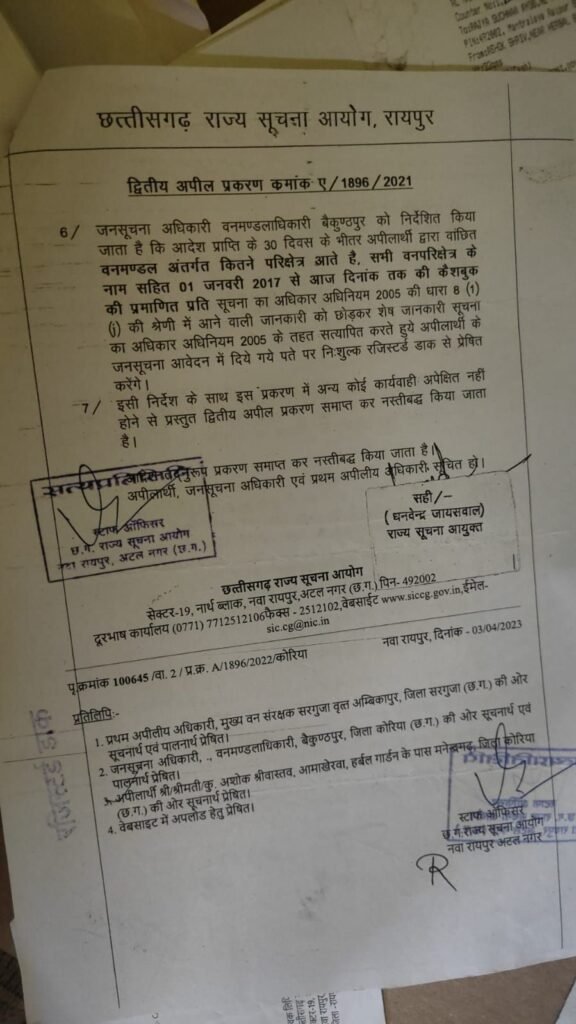 Counter No:1,
छत्तीसगढ़ राज्य सूचना आयोग, रायपुर
द्वितीय अपील प्रकरण कमांक ए/1896/2021
6/ जनसूचना अधिकारी वनमण्डलाधिकारी बैकुण्ठपुर को निर्देशित किया
जाता है कि आदेश प्राप्ति के 30 दिवस के भीतर अपीलार्थी द्वारा वांछित
वनमण्डल अंतर्गत कितने परिक्षेत्र आते है, सभी वनपरिक्षेत्र के
नाम सहित 01 जनवरी 2017 से आज दिनांक तक की कैशबुक
की प्रमाणित प्रति सूचना का अधिकार अधिनियम 2005 की धारा 8 (1)
(j) की श्रेणी में आने वाली जानकारी को छोड़कर शेष जानकारी सूचना
का अधिकार अधिनियम 2005 के तहत सत्यापित करते हुये अपीलार्थी के
जनसूचना आवेदन में दिये गये पते पर निःशुल्क रजिस्टर्ड डाक से प्रेषित
करेंगे।
7/ इसी निर्देश के साथ इस प्रकरण में अन्य कोई कार्यवाही अपेक्षित नहीं
होने से प्रस्तुत द्वितीय अपील प्रकरण समाप्त कर नस्तीबद्ध किया जाता
है।
प्रकरण समाप्त कर नस्तीबद्ध किया जाता है।
अपीलार्थी, जनसूचना अधिकारी एवं प्रथम अपीलीय अधिकारी सूचित हो।
स्टाफ ऑफिसर
छ.ग. राज्य सूचना आयोग
नवा रायपुर, अटल नगर (छ.ग.)
सही/-
(घनवेन्द्र जायसवाल)
राज्य सूचना आयुक्त
छत्तीसगढ़ राज्य सूचना आयोग
सेक्टर-19, नार्थ ब्लाक, नवा रायपुर,अटल नगर (छ.ग.) पिन- 492002
दूरभाष कार्यालय (0771) 7712512106फैक्स - 2512102,वेबसाईट www.siccg.gov.in,ईमेल-
sic.cg@nic.in
पृ.क्रमांक 100645 /वा. 2 / प्र.क्र. A/1896/2022/कोरिया
नवा रायपुर, दिनांक - 03/04/2023
प्रतिलिपिः-
1. प्रथम अपीलीय अधिकारी, मुख्य वन संरक्षक सरगुजा वृत्त अम्बिकापुर, जिला सरगुजा (छ.ग.) की ओर
सूचनार्थ एवं पालनार्थ प्रेषित।
2. जनसूचना अधिकारी, ., वनमण्डलाधिकारी, बैकुण्ठपुर, जिला कोरिया (छ.ग.) की ओर सूचनार्थ एवं
पालनार्थ प्रेषित।
अपीलार्थी श्री/श्रीमती/कु. अशोक श्रीवास्तव, आमाखेरवा, हर्बल गार्डन के पास मनेन्द्रगढ़, जिला कोरिया
(छ.ग.) की ओर सूचनार्थ प्रेषित।
4. वेबसाइट में अपलोड हेतु प्रेषित।
स्टाफ ऑफिसर
छ.ग.राज्य सूचना आयोग
नवा रायपुर अटल नगर
R